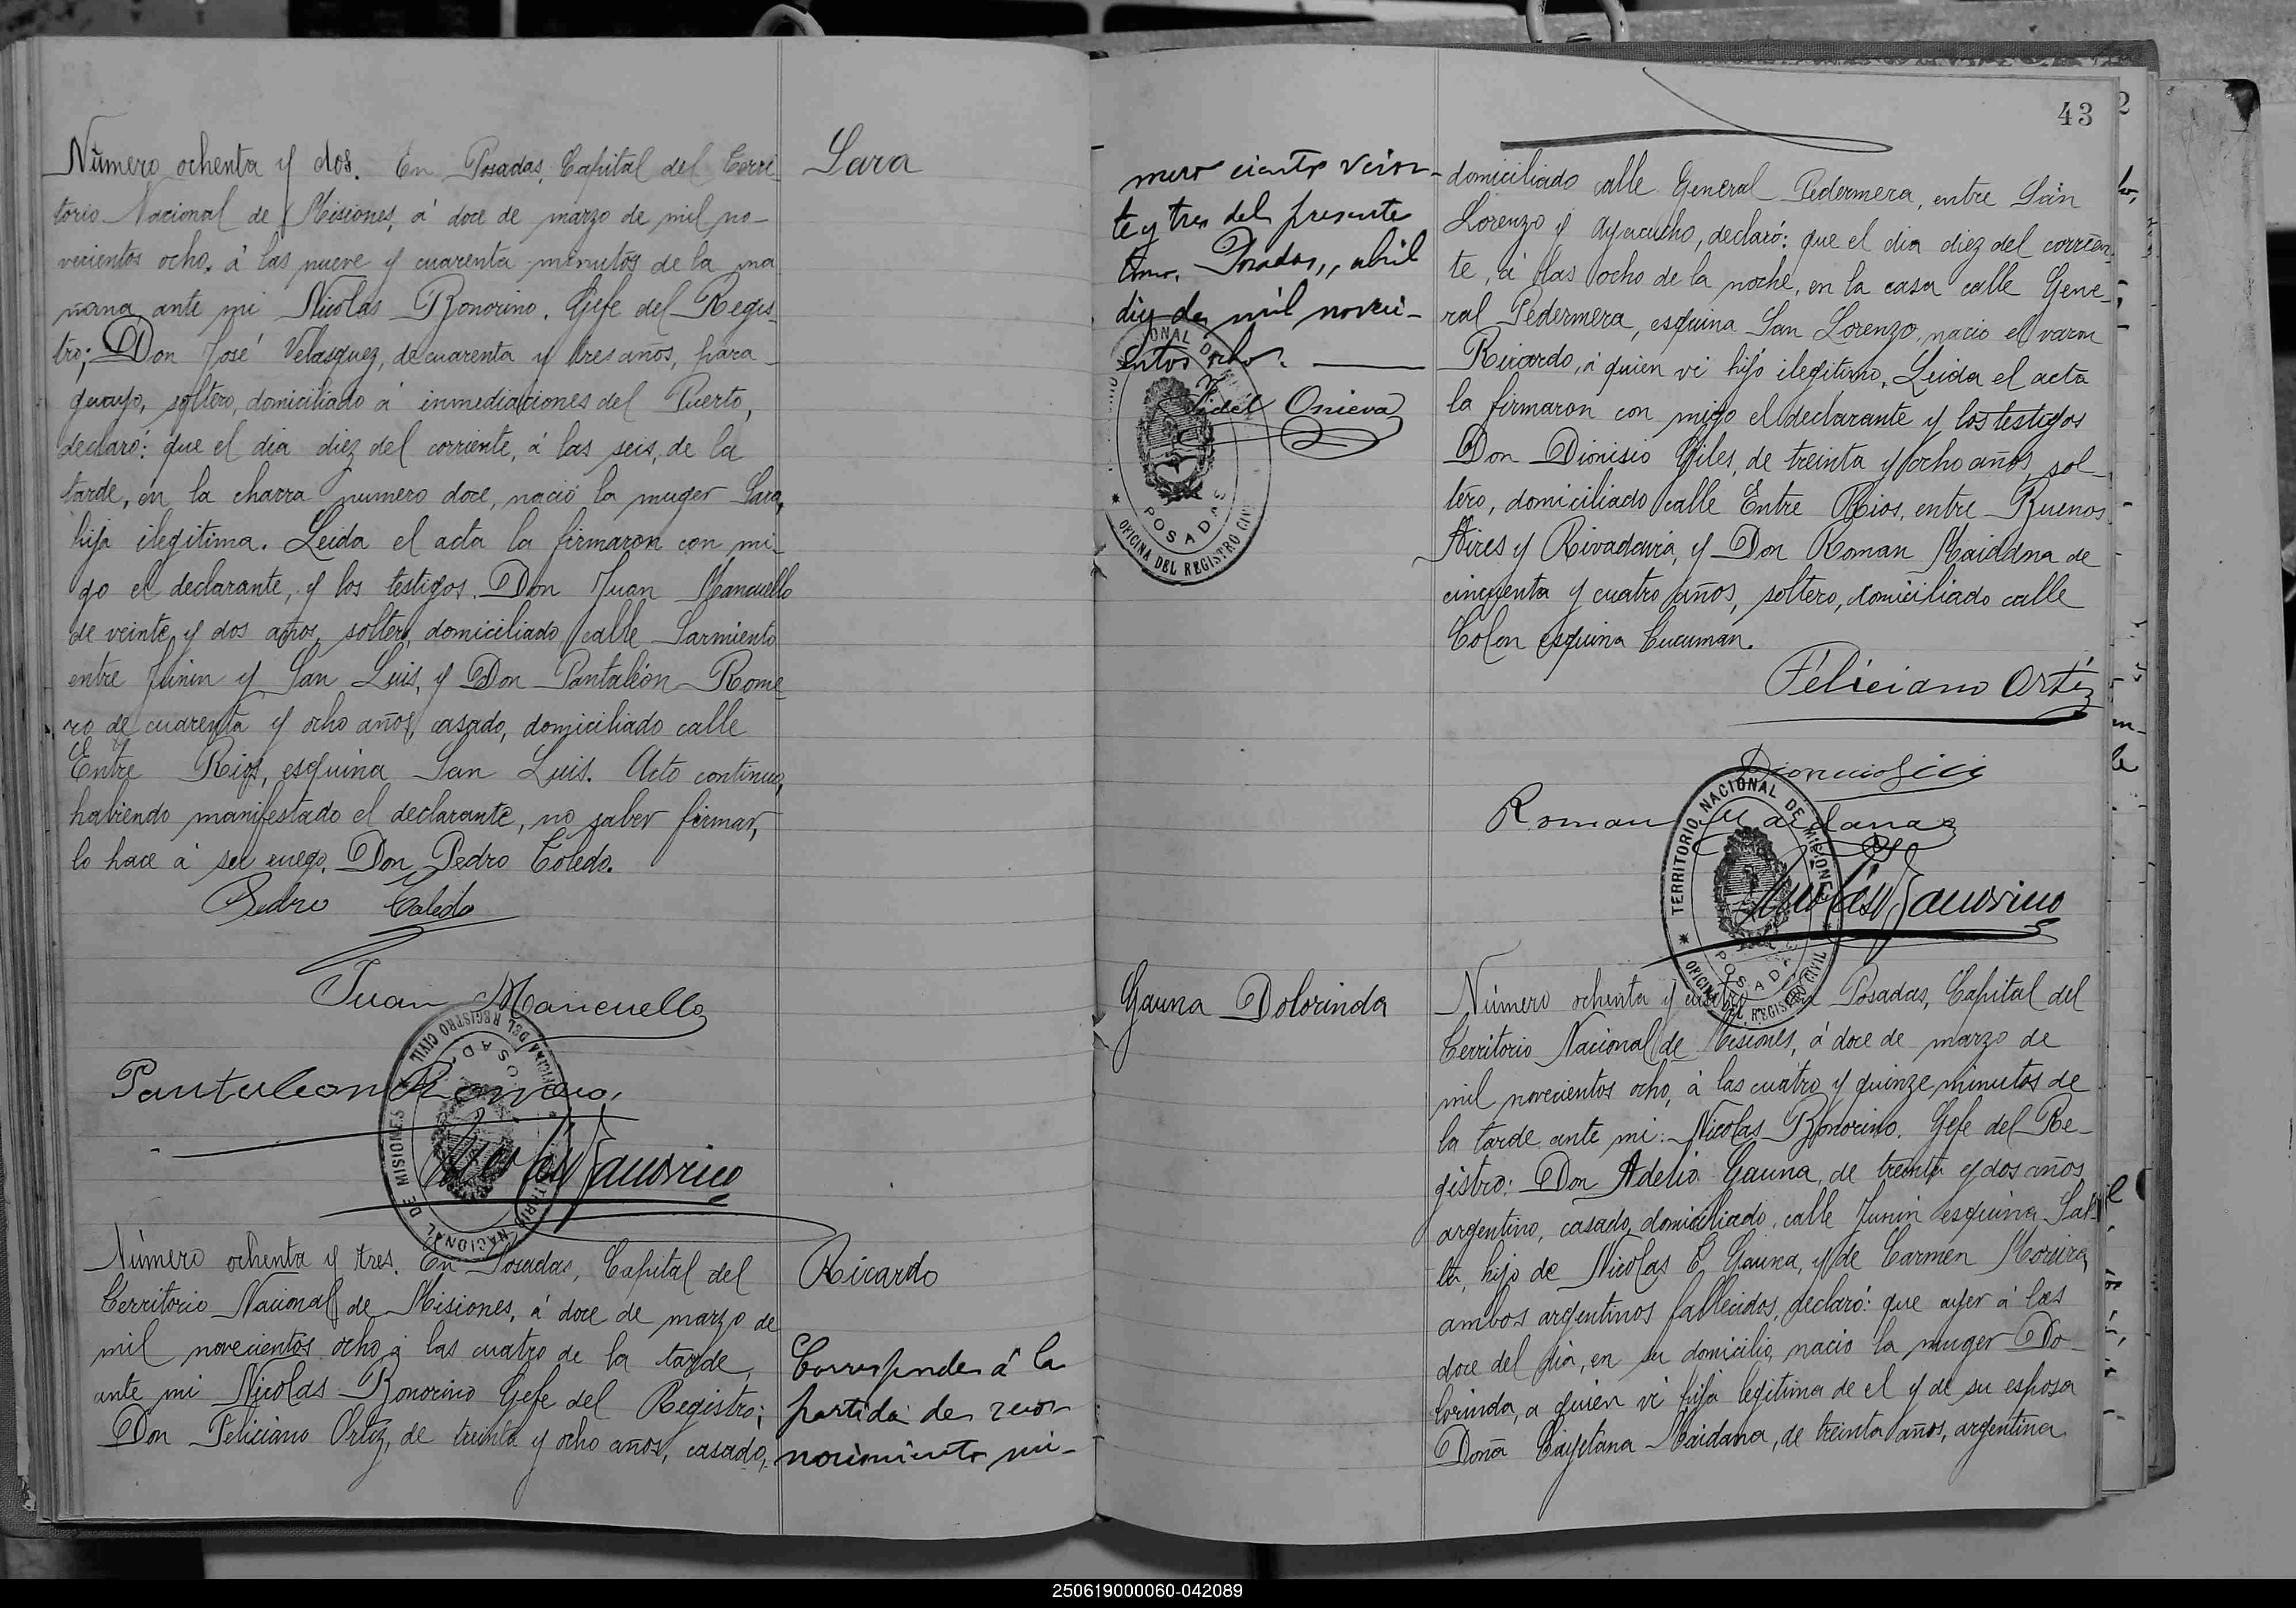 Número ochenta y dos. En Posadas, Capital del Terri-
torio Nacional de Misiones, á doce de marzo de mil no-
vecientos ocho, á las nueve y cuarenta minutos de la ma
ñana ante mi Nicolas Bonorino, Gefe del Regis-
tro; Don José Velasquez, de cuarenta y tres años, para-
guayo, soltero, domiciliado á inmediaciones del Puerto,
declaró: que el dia diez del corriente, á las seis, de la
tarde, en la chacra numero doce, nació la muger Sara,
hija ilegitima. Leida el acta la firmaron con mi-
go el declarante, y los testigos Don Juan Mancuello
de veinte y dos años, soltero, domiciliado calle Sarmiento
entre Junin y San Luis, y Don Pantaleón Rome-
ro de cuarenta y ocho años, casado, domiciliado calle
Entre Rios, esquina San Luis. Acto continuo,
habiendo manifestado el declarante, no saber firmar,
lo hace á su ruego, Don Pedro Toledo.
Pedro Toledo
Juan Mancuello
Pantaleon Romero
Nicolás Bonorino
TERRITORIO NACIONAL DE MISIONES
OFICINA DEL REGISTRO CIVIL
POSADAS
Sara
Número ochenta y tres. En Posadas, Capital del
Territorio Nacional de Misiones, á doce de marzo de
mil novecientos ocho á las cuatro de la tarde,
ante mi Nicolas Bonorino Gefe del Registro;
Don Feliciano Ortiz, de treinta y ocho años, casado,
Ricardo
Corresponde á la
partida de reco-
nocimiento nú-
43
mero ciento vein-
te y tres del presente
tomo. Posadas, abril
diez de mil noveci-
entos ocho.
Fidel Onieva
POSADAS
OFICINA DEL REGISTRO CIVIL
domiciliado calle General Pedernera, entre San
Lorenzo y Ayacucho, declaró: que el dia diez del corrien-
te, á las ocho de la noche, en la casa calle Gene-
ral Pedernera, esquina San Lorenzo, nacio el varon
Ricardo, á quien vi hijo ilegitimo. Leida el acta
la firmaron con migo el declarante y los testigos
Don Dionisio Giles, de treinta y ocho años, sol-
tero, domiciliado calle Entre Rios, entre Buenos
Aires y Rivadavia, y Don Roman Maidana de
cincuenta y cuatro años, soltero, domiciliado calle
Colon esquina Tucuman.
Féliciano Ortiz
Roman Maidana
Nicolás Bonorino
TERRITORIO NACIONAL DE MISIONES
OFICINA DEL REGISTRO CIVIL
POSADAS
Gauna Dolorinda
Número ochenta y cuatro En Posadas, Capital del
Territorio Nacional de Misiones, á doce de marzo de
mil novecientos ocho, á las cuatro y quinze minutos de
la tarde ante mi: Nicolas Bonorino. Gefe del Re-
gistro: Don Adelio Gauna, de treinta y dos años,
argentino, casado, domiciliado, calle Junin esquina Sal-
ta, hijo de Nicolas E. Gauna, y de Carmen Moreira,
ambos argentinos fallecidos, declaró: que ayer á las
doce del dia, en su domicilio, nacio la muger Do-
lorinda, a quien vi hija legitima de el y de su esposa
Doña Cayetana Maidana, de treinta años, argentina
250619000060-042089